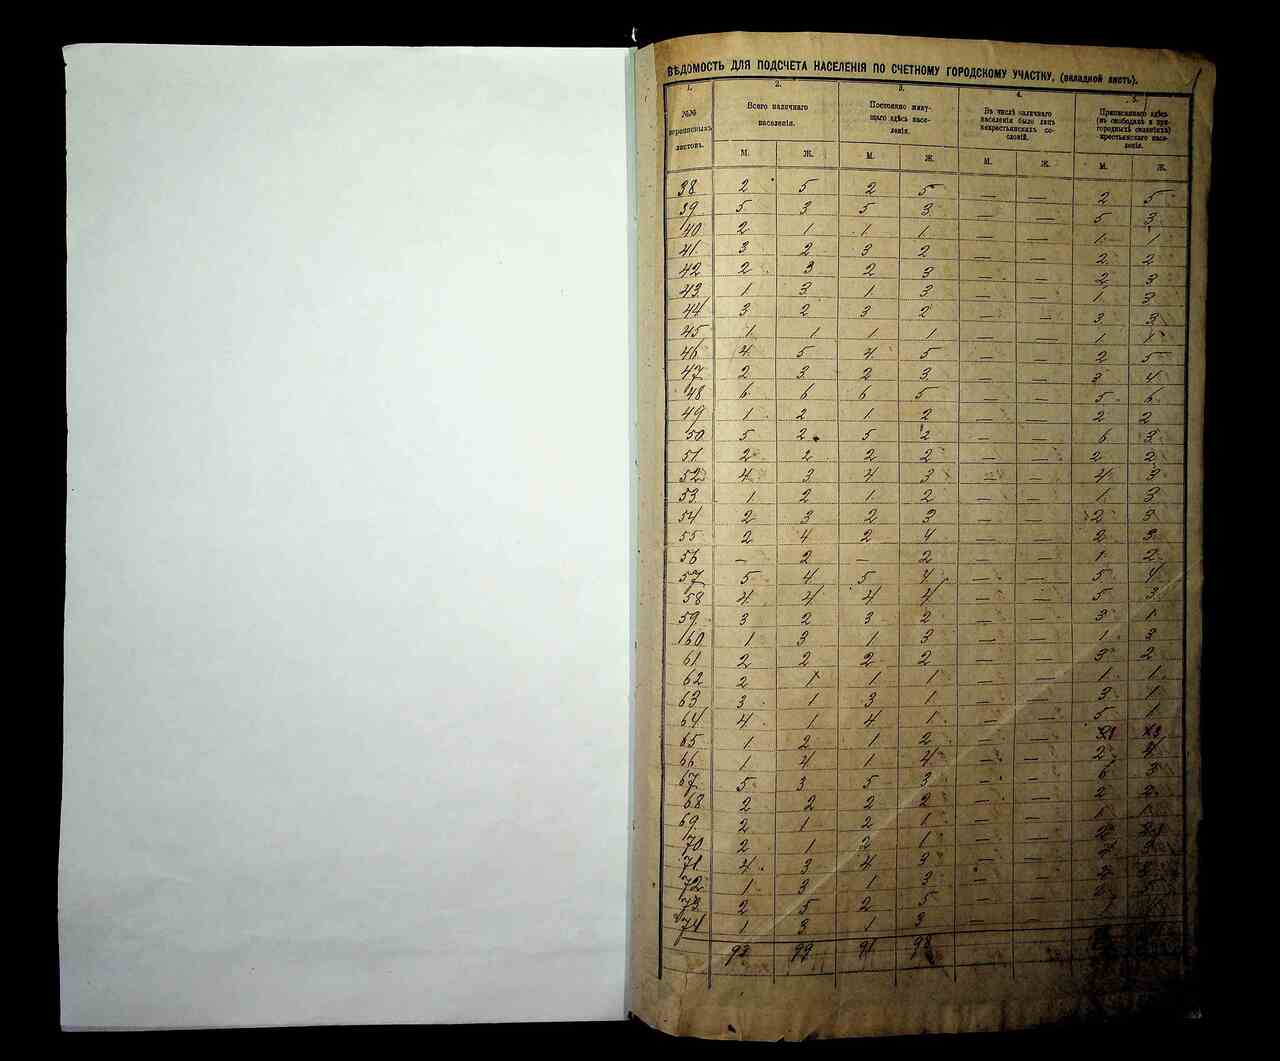 ВѢДОМОСТЬ ДЛЯ ПОДСЧЕТА НАСЕЛЕНІЯ ПО СЧЕТНОМУ ГОРОДСКОМУ УЧАСТКУ, (вкладной листъ).
1. 2. 3. 4. 5.
№№ переписныхъ листовъ.
Всего наличнаго населенія.
Постоянно живущаго здѣсь населенія.
Въ числѣ наличнаго населенія было лицъ некрестьянскихъ сословій.
Приписаннаго здѣсь (въ слободахъ и пригородныхъ селеніяхъ) крестьянскаго населенія.
М. Ж. М. Ж. М. Ж. М. Ж.
38 2 5 2 5 — — 2 5
39 5 3 5 3 — — 5 3
40 2 1 1 1 — — 1 1
41 3 2 3 2 — — 2 2
42 2 3 2 3 — — 2 3
43 1 3 1 3 — — 1 3
44 3 2 3 2 — — 3 3
45 1 1 1 1 — — 1 1
46 4 5 4 5 — — 2 5
47 2 3 2 3 — — 3 4
48 6 6 6 5 — — 5 6
49 1 2 1 2 — — 2 2
50 5 2 5 2 — — 6 3
51 2 2 2 2 — — 2 2
52 4 3 4 3 — — 4 3
53 1 2 1 2 — — 1 3
54 2 3 2 3 — — 2 3
55 2 4 2 4 — — 2 3
56 — 2 — 2 — — 1 2
57 5 4 5 4 — — 5 4
58 4 4 4 4 — — 5 3
59 3 2 3 2 — — 3 1
60 1 3 1 3 — — 1 3
61 2 2 2 2 — — 3 2
62 2 1 1 1 — — 1 1
63 3 1 3 1 — — 3 1
64 4 1 4 1 — — 5 1
65 1 2 1 2 — —
66 1 4 1 4 — — 2 4
67 5 3 5 3 — — 6 3
68 2 2 2 2 — — 2 2
69 2 1 2 1 — — 1 1
70 2 1 2 1 — —
71 4 3 4 3 — —
72 1 3 1 3 — —
73 2 5 2 5 — —
74 1 3 1 3 — —
93 99 91 98